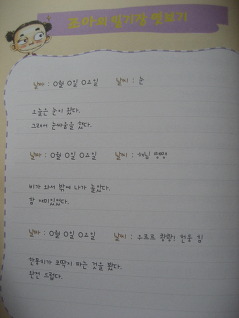 조아의 일기장 엿보기
날짜 : 0월 0일 0요일 날씨 : 눈
오늘은 눈이 왔다.
그래서 눈싸움을 했다.
날짜 : 0월 0일 0요일 날씨 : 해님 쨍쨍
비가 와서 밖에 나가 놀았다.
참 재미있었다.
날짜 : 0월 0일 0요일 날씨 : 우르르 쾅쾅! 천둥 침
만웅이가 코딱지 파는 것을 봤다.
완전 드럽다.